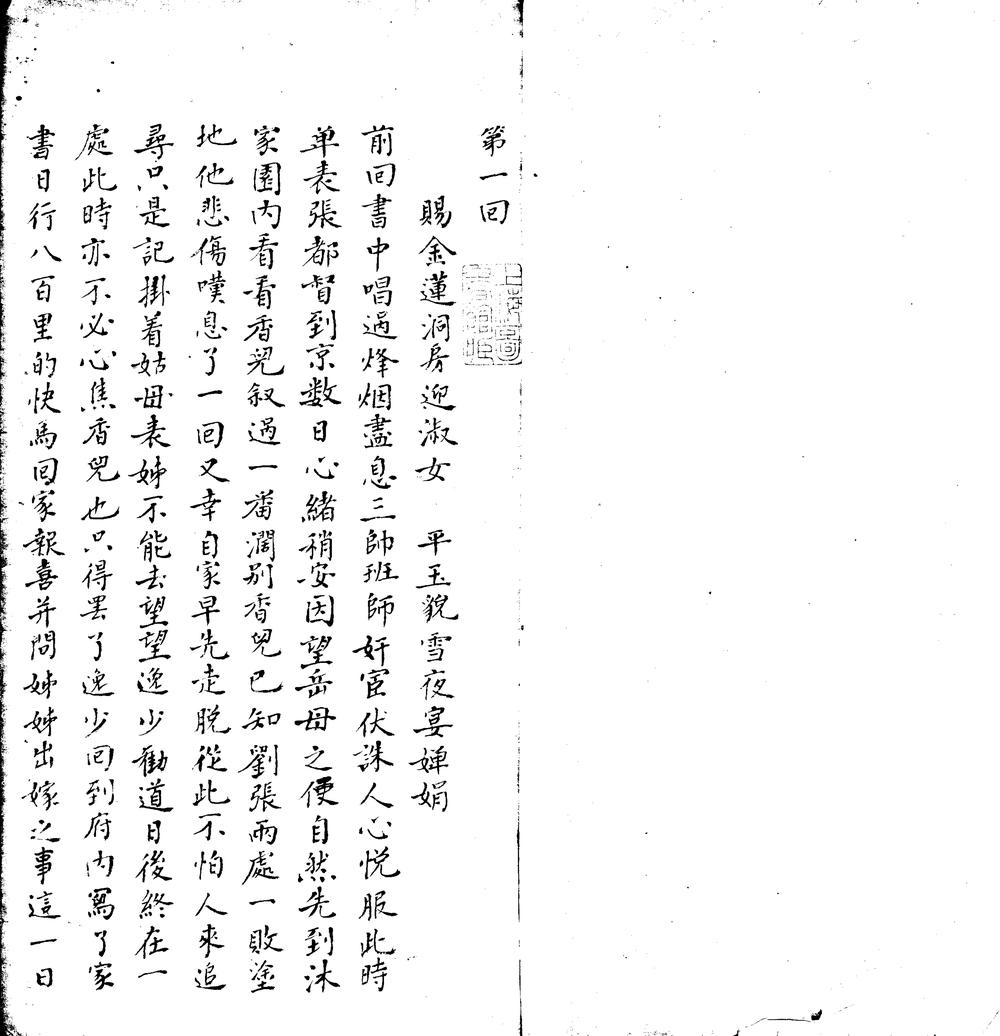 第一回
賜金蓮洞房迎淑女　平玉貌雪夜宴嬋娟
前回書中唱過烽烟盡息三帥班師奸宦伏誅人心悅服此時
单表張都督到京数日心緒稍安因望岳母之便自然先到沐
家園内看看香兒叙過一番濶别香兒已知劉張兩處一敗塗
地他悲傷嘆息了一回又幸自家早先走脱從此不怕人來追
尋只是記掛着姑母表姊不能去望望逸少勸道日後終在一
處此時亦不必心焦香兒也只得罢了逸少回到府内寫了家
書日行八百里的快馬回家報喜并問姊姊出嫁之事這一日